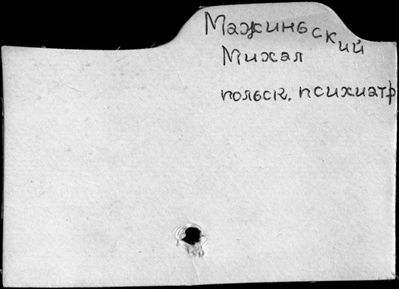 Мажиньский
Михал
польск. психиатр